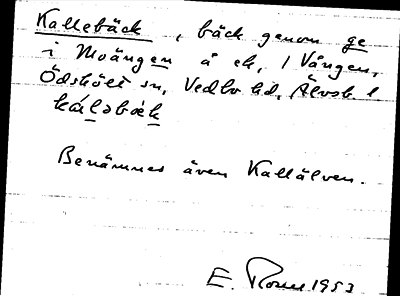 Kallebäck, bäck genom ge
i Moängen å ek, 1 Vången,
Ödskölt sn, Vedbo hd, Älvsb. l
kál₂bæk
Benämnes även Kallälven.
E. 1953